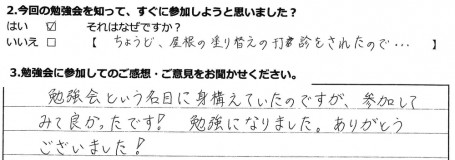 2.今回の勉強会を知って、すぐに参加しようと思いました?
はい ☑ それはなぜですか?
いいえ □ 【 ちょうど、屋根の塗り替えの打診をされたので… 】
3.勉強会に参加してのご感想・ご意見をお聞かせください。
勉強会という名目に身構えていたのですが、参加して
みて良かったです! 勉強になりました。ありがとう
ございました!